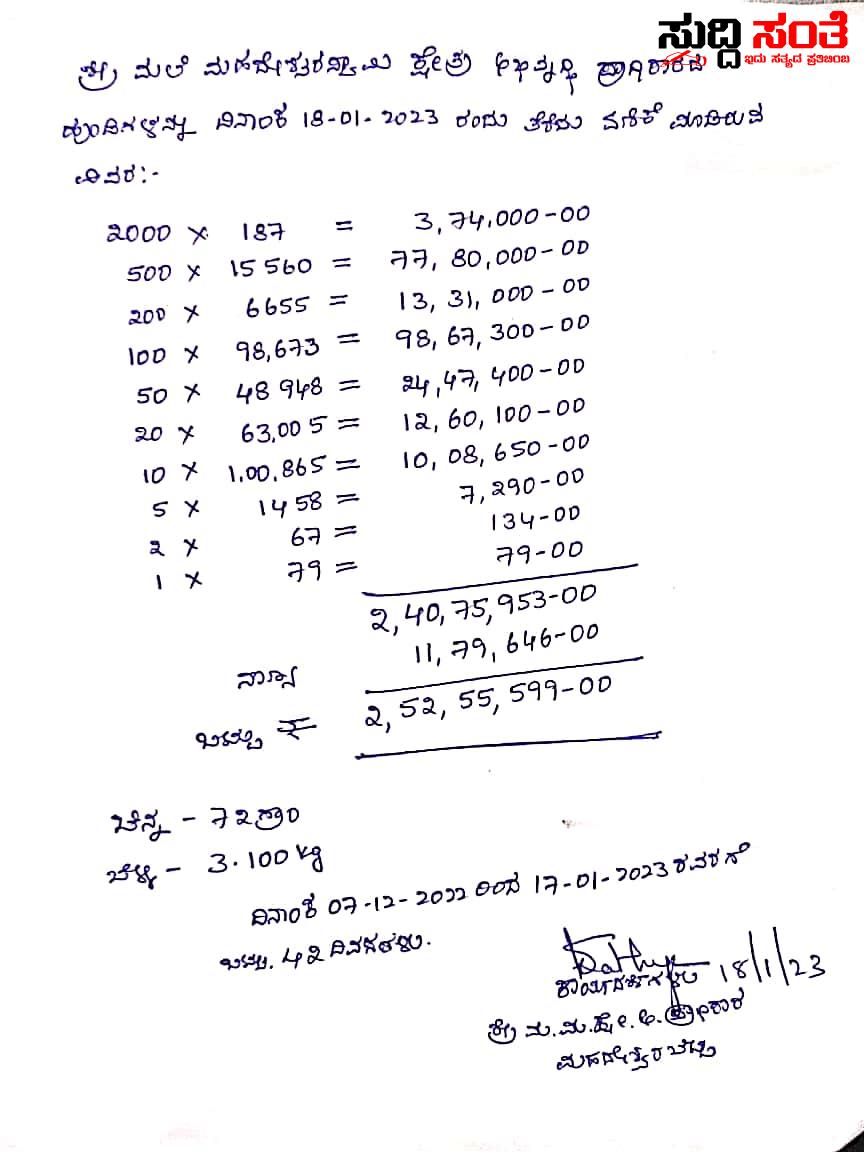 ಸುದ್ದಿ ಸಂತೆ
ಇದು ಸತ್ಯದ ಪ್ರತಿಬಿಂಬ
ಶ್ರೀ ಮಲೆ ಮಹದೇಶ್ವರಸ್ವಾಮಿ ಕ್ಷೇತ್ರ ಅಭಿವೃದ್ಧಿ ಪ್ರಾಧಿಕಾರದ
ಹುಂಡಿಗಳನ್ನು ದಿನಾಂಕ 18-01-2023 ರಂದು ತೆರೆದು ಎಣಿಕೆ ಮಾಡಿರುವ
ವಿವರ:-
2000 × 187 = 3,74,000-00
500 × 15560 = 77,80,000-00
200 × 6655 = 13,31,000-00
100 × 98,673 = 98,67,300-00
50 × 48948 = 24,47,400-00
20 × 63,005 = 12,60,100-00
10 × 1,00,865 = 10,08,650-00
5 × 1458 = 7,290-00
2 × 67 = 134-00
1 × 79 = 79-00
2,40,75,953-00
11,79,646-00
ನಾಣ್ಯ
ಒಟ್ಟು ₹ 2,52,55,599-00
ಚಿನ್ನ - 72ಗ್ರಾಂ
ಬೆಳ್ಳಿ - 3.100 kg
ದಿನಾಂಕ 07-12-2022 ರಿಂದ 17-01-2023 ರವರೆಗೆ
ಒಟ್ಟು. 42 ದಿವಸಗಳು.
18/1/23
ಕಾರ್ಯದರ್ಶಿಗಳು
ಶ್ರೀ ಮ.ಮ.ಕ್ಷೇ.ಅ.ಪ್ರಾಧಿಕಾರ
ಮಹದೇಶ್ವರಬೆಟ್ಟ